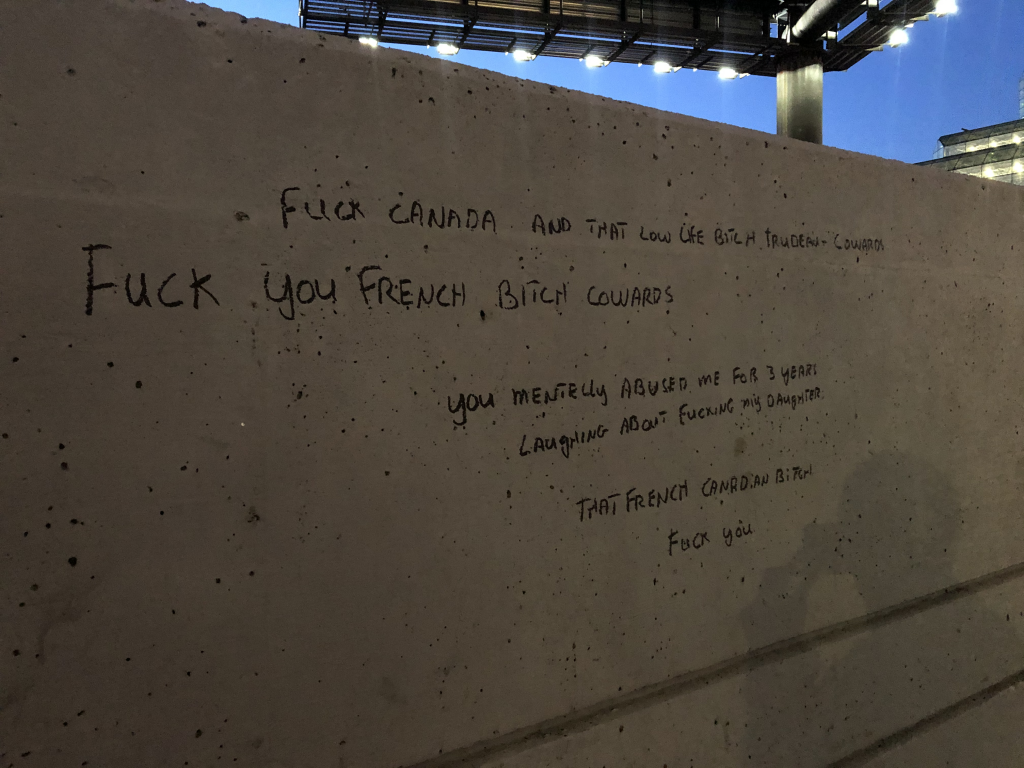 FUCK CANADA AND THAT LOW LIFE BITCH TRUDEAU- COWARDS
FUCK YOU FRENCH BITCH COWARDS
YOU MENTELLY ABUSED ME FOR 3 YEARS
LAUGHING ABOUT FUCKING MY DAUGHTER.
THAT FRENCH CANADIAN BITCH
FUCK YOU